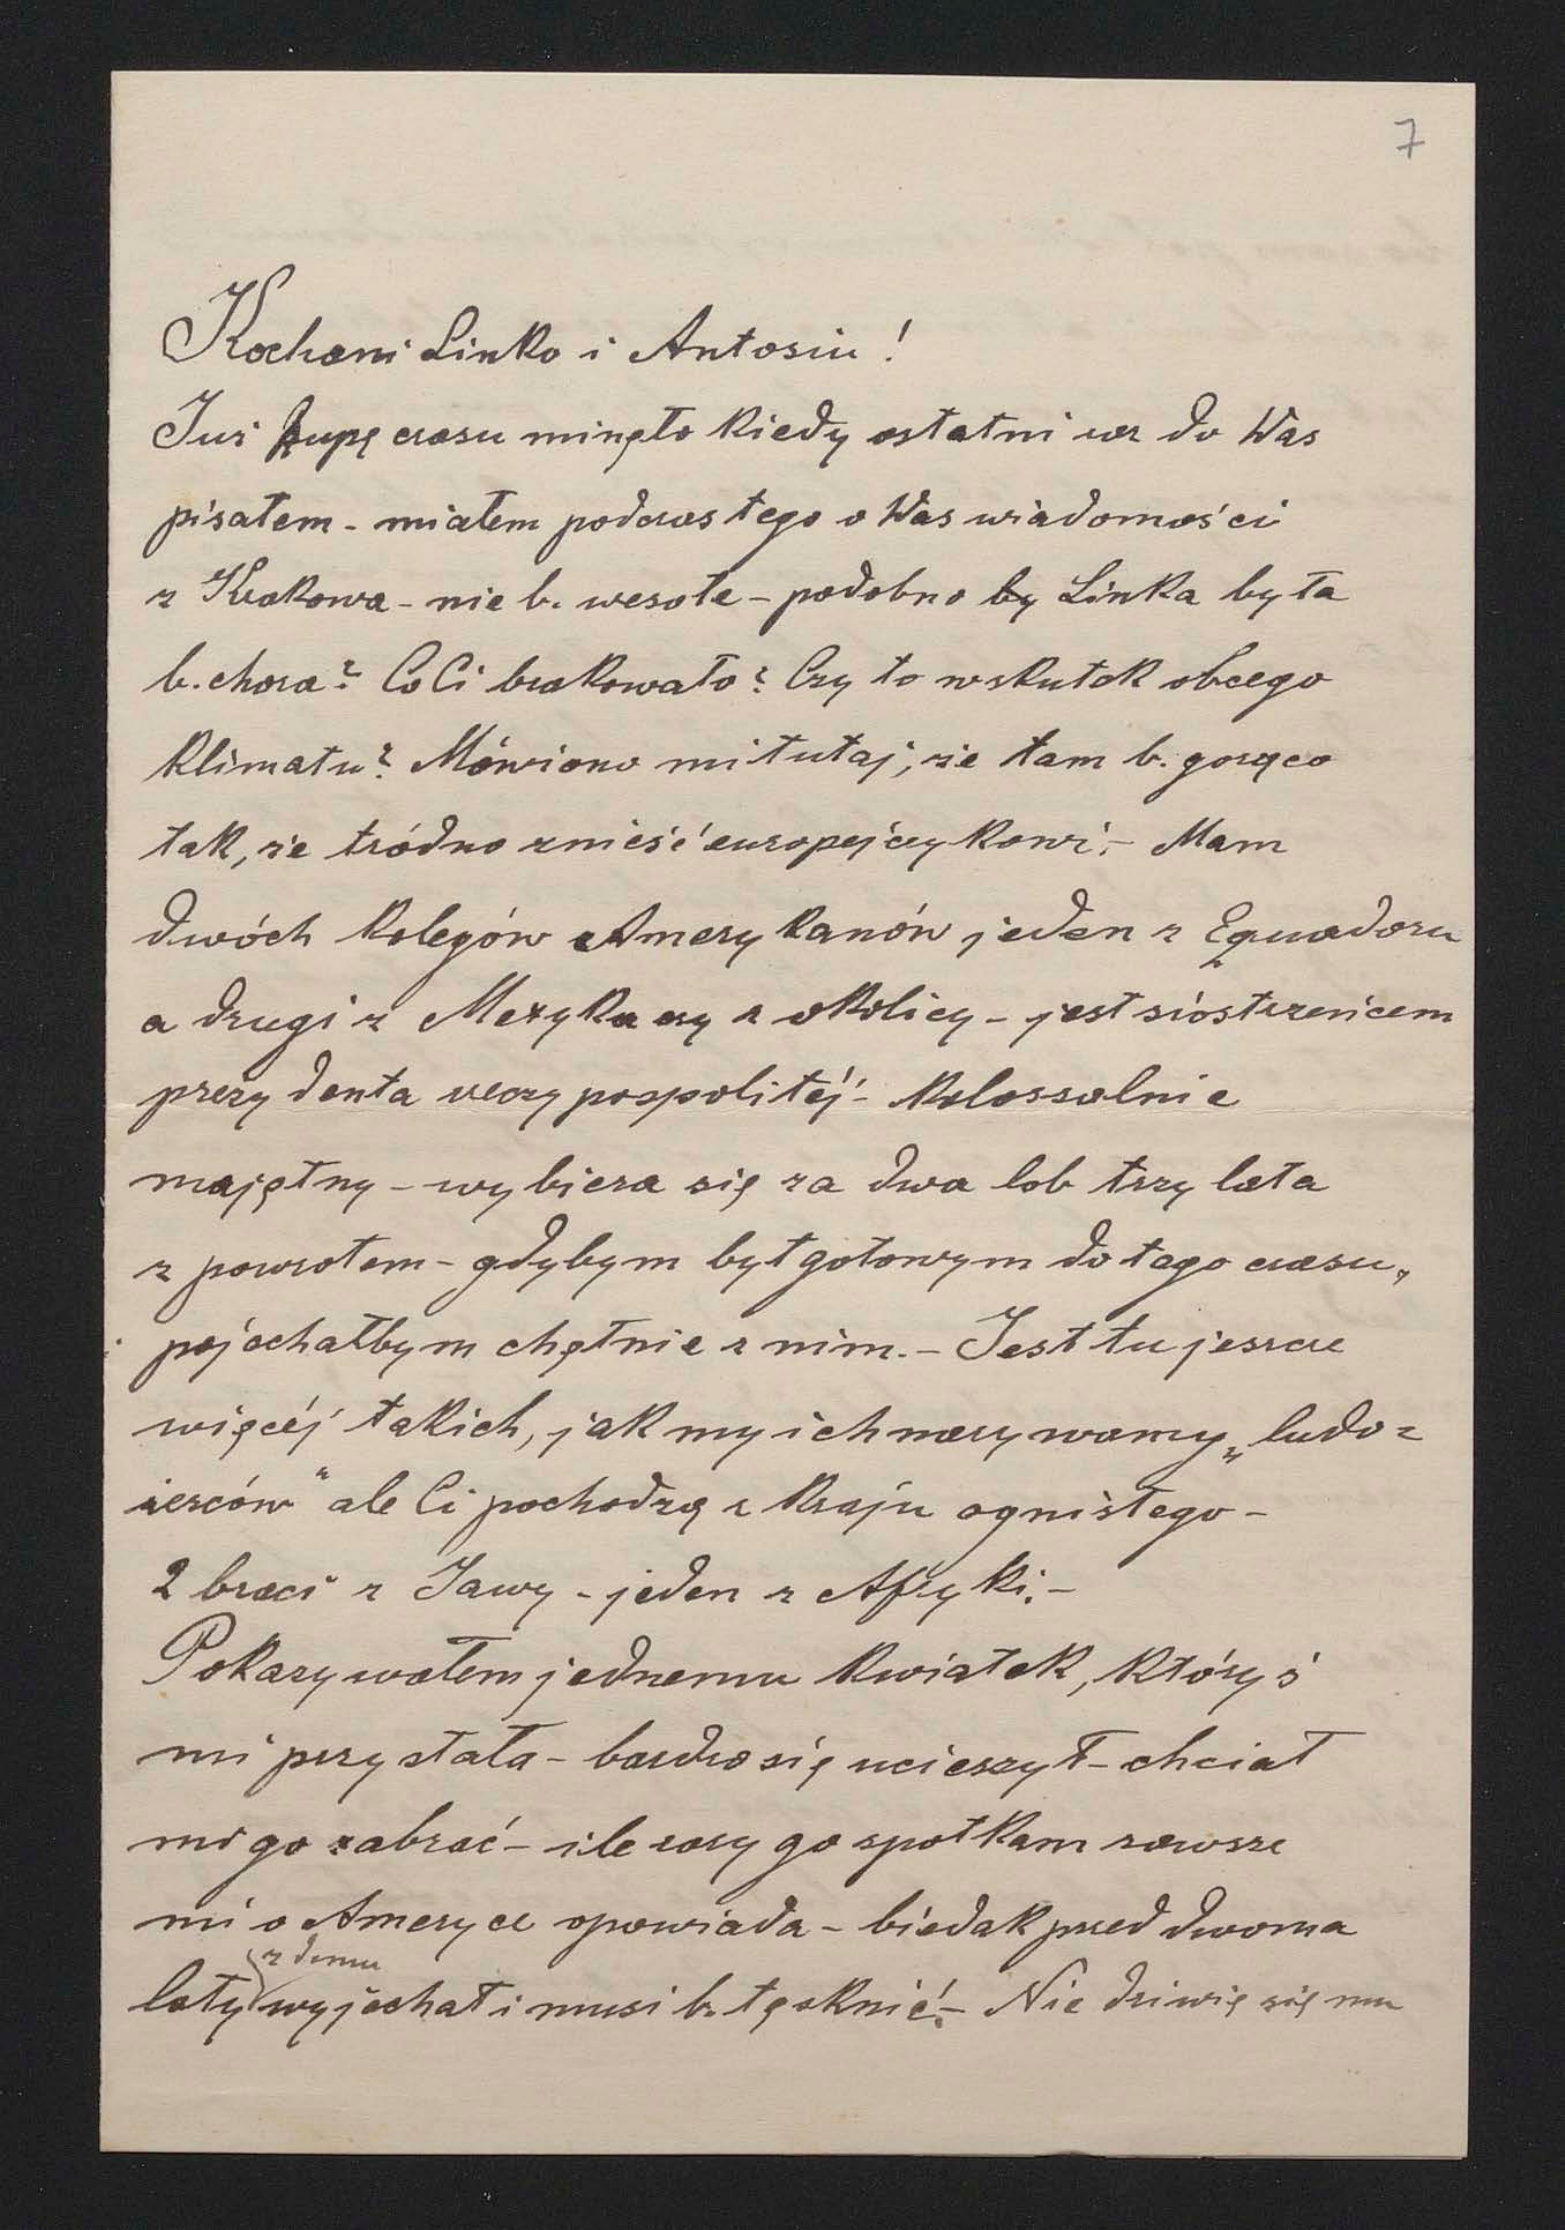 7
Kochani Linko i Antosiu!
Już kupę czasu minęło kiedy ostatni raz do Was
pisałem - miałem podczas tego o Was wiadomości
z Krakowa - nie b. wesołe - podobno by Linka była
b. chora? Co Ci brakowało? Czy to wskutek obcego
klimatu? Mówiono mi tutaj, że tam b. gorąco
tak, że tródno znieść europejczykowi. - Mam
dwóch kolegów Amerykanów jeden z Equadoru
a drugi z Mexyka czy z okolicy - jest sióstrzeńcem
prezydenta rzeczypospolitéj - kolossalnie
majętny - wybiera się za dwa lob trzy lata
z powrotem - gdybym był gotowym do tego czasu,
pojechałbym chętnie z nim. - Jest tu jeszcze
więcéj takich, jak my ich nazywamy „ludo=
żerców" ale Ci pochodzą z kraju ognistego -
2 braci z Jawy - jeden z Afryki. -
Pokazywałem jednemu kwiatek, któryś
mi przysłała - bardzo się ucieszył - chciał
mi go zabrać - ile razy go spotkam zawsze
mi o Ameryce opowiada - biedak przed dwoma
z domu
laty wyjechał i musi b. tęsknić. - Nie dziwię się mu